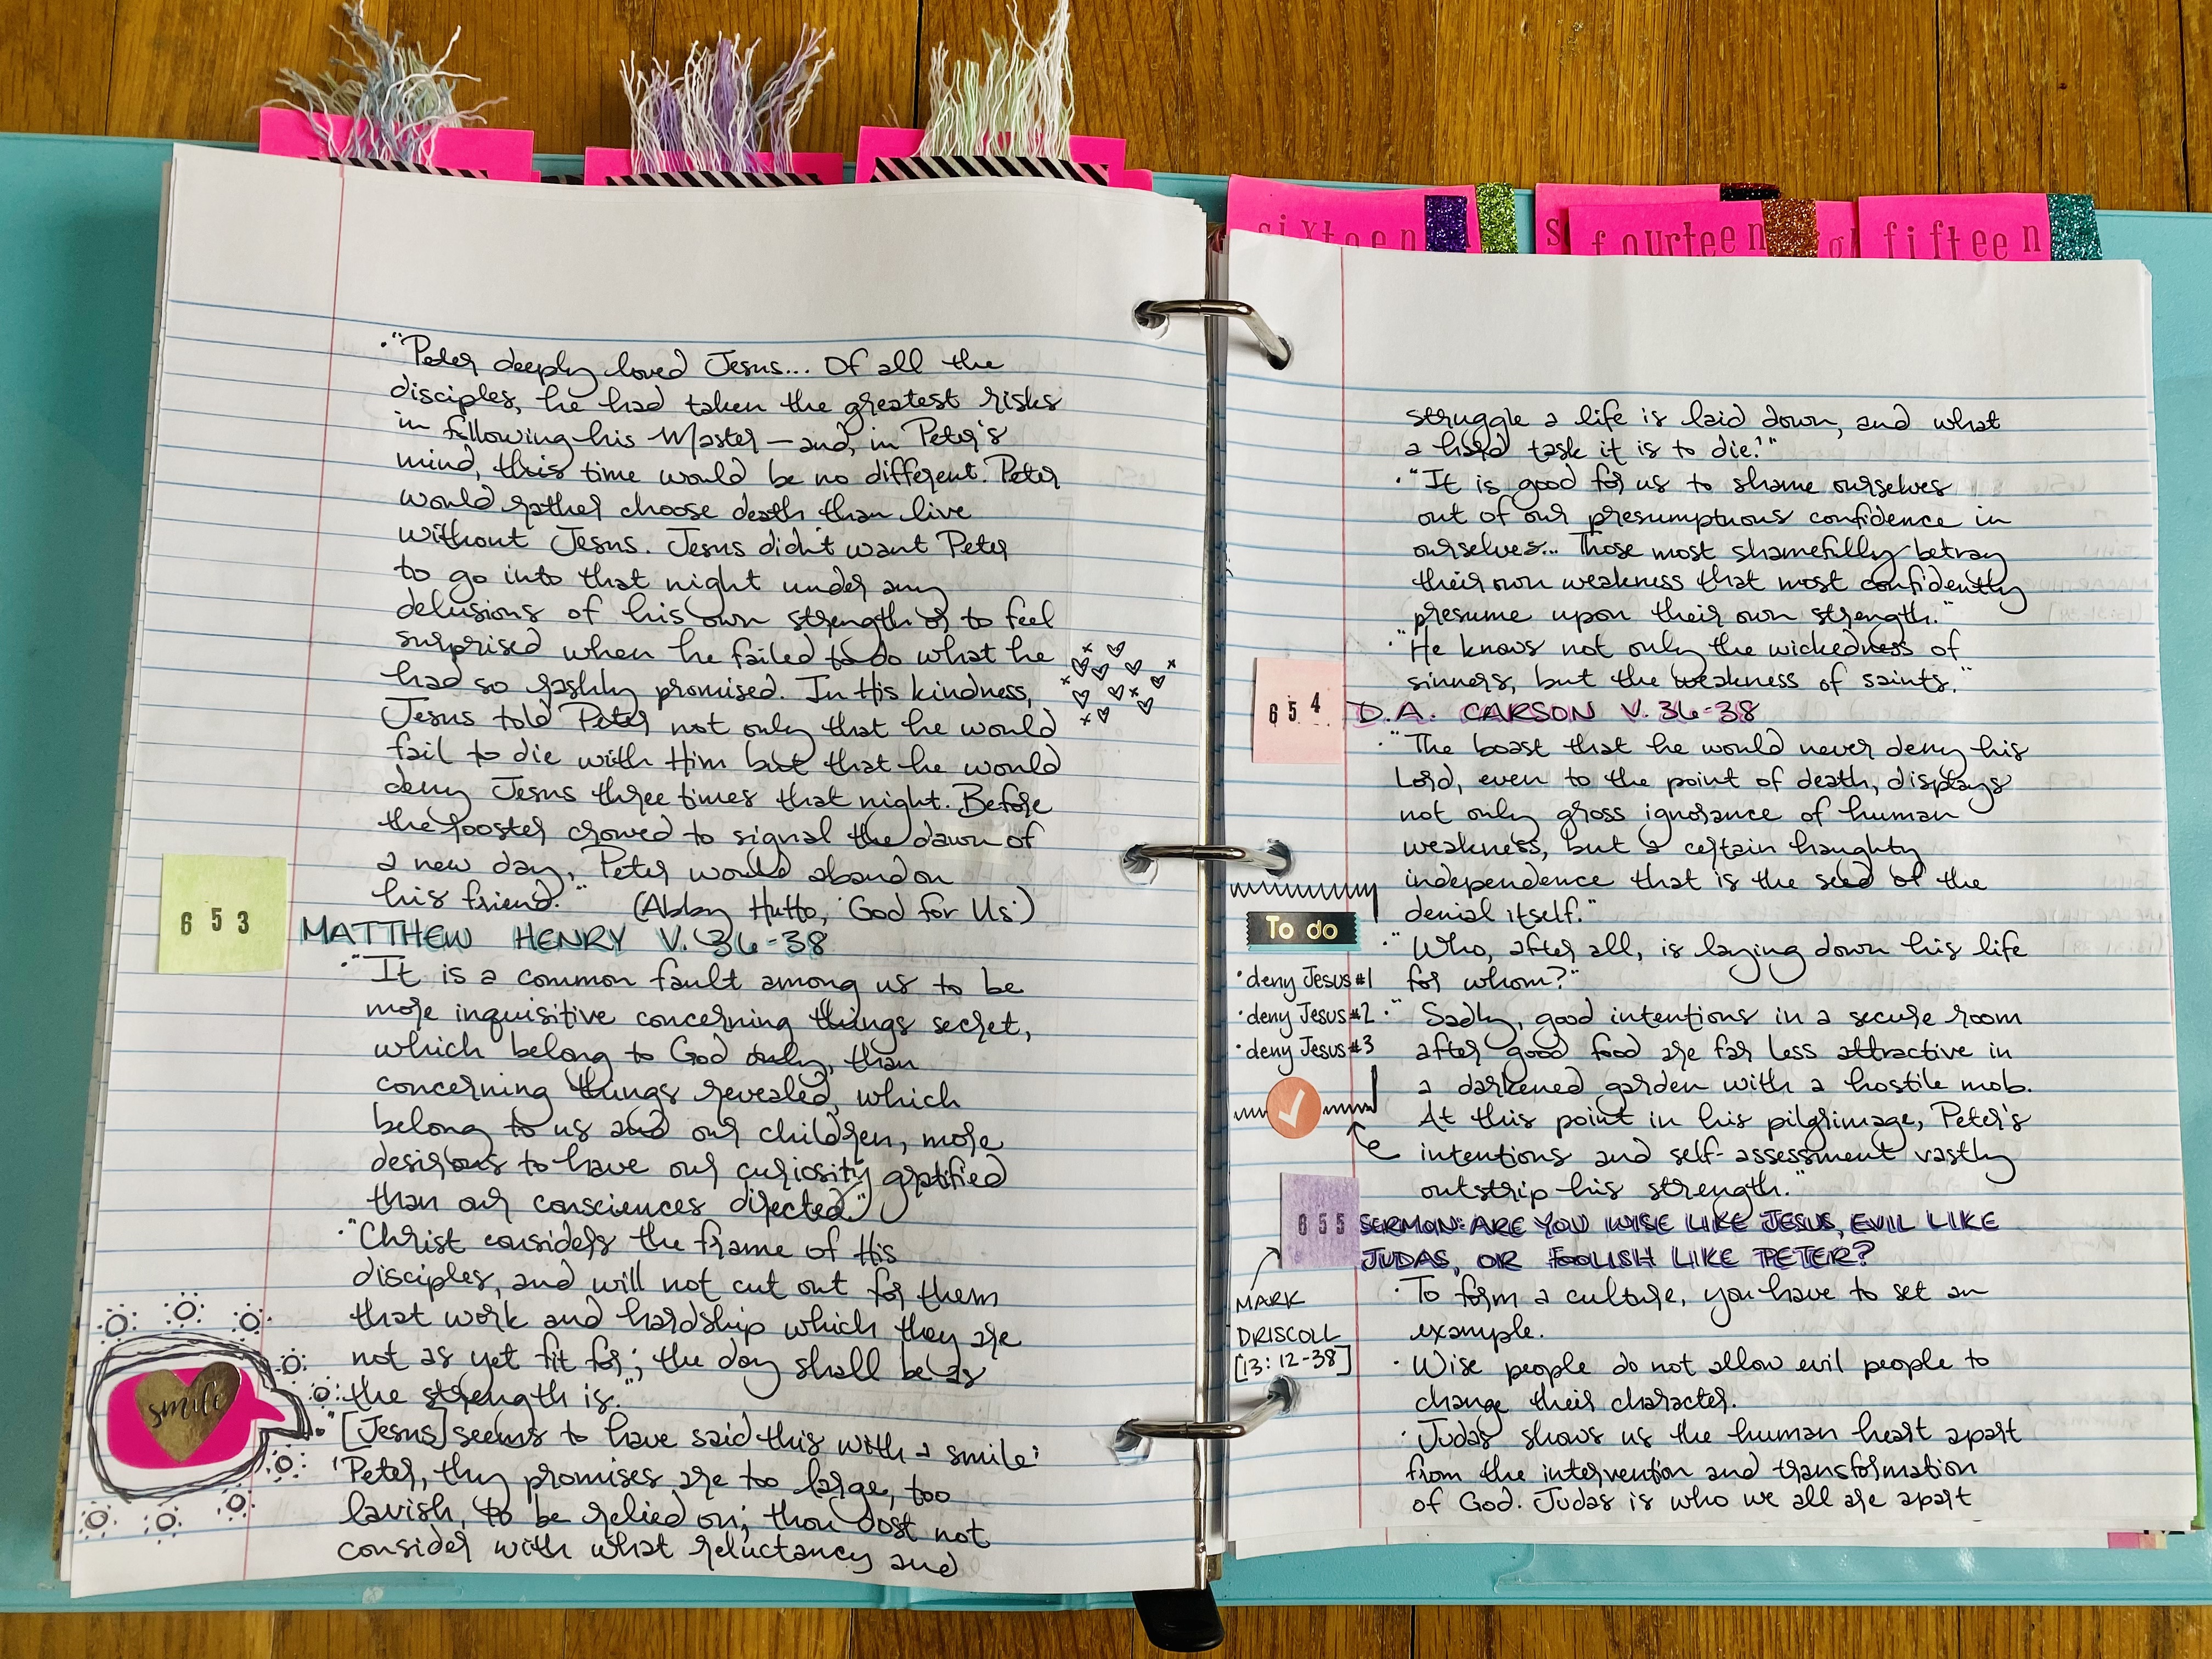 · "Peter deeply loved Jesus... Of all the
disciples, he had taken the greatest risks
in following his Master — and, in Peter's
mind, this time would be no different. Peter
would rather choose death than live
without Jesus. Jesus didn't want Peter
to go into that night under any
delusions of his own strength or to feel
surprised when he failed to do what he
had so rashly promised. In His kindness,
Jesus told Peter not only that he would
fail to die with Him but that he would
deny Jesus three times that night. Before
the rooster crowed to signal the dawn of
a new day, Peter would abandon
his friend." (Abby Hutto, 'God for Us')
653 MATTHEW HENRY V. 36-38
· "It is a common fault among us to be
more inquisitive concerning things secret,
which belong to God only, than
concerning things revealed, which
belong to us and our children, more
desirous to have our curiosity gratified
than our consciences directed."
· "Christ considers the frame of His
disciples, and will not cut out for them
that work and hardship which they are
not as yet fit for; the day shall be as
the strength is."
smile
· "[Jesus] seems to have said this with a smile:
'Peter, thy promises are too large, too
lavish, to be relied on; thou dost not
consider with what reluctancy and
sixteen
fourteen
fifteen
struggle a life is laid down, and what
a hard task it is to die!'"
· "It is good for us to shame ourselves
out of our presumptuous confidence in
ourselves... Those most shamefully betray
their own weakness that most confidently
presume upon their own strength."
· "He knows not only the wickedness of
sinners, but the weakness of saints."
654 D.A. CARSON V. 36-38
· "The boast that he would never deny his
Lord, even to the point of death, displays
not only gross ignorance of human
weakness, but a certain haughty
independence that is the seed of the
denial itself."
· "Who, after all, is laying down his life
for whom?"
· "Sadly, good intentions in a secure room
after good food are far less attractive in
a darkened garden with a hostile mob.
At this point in his pilgrimage, Peter's
intentions and self-assessment vastly
outstrip his strength."
To do
· deny Jesus #1
· deny Jesus #2
· deny Jesus #3
655 SERMON: ARE YOU WISE LIKE JESUS, EVIL LIKE
JUDAS, OR FOOLISH LIKE PETER?
MARK
DRISCOLL
[13:12-38]
· To form a culture, you have to set an
example.
· Wise people do not allow evil people to
change their character.
· Judas shows us the human heart apart
from the intervention and transformation
of God. Judas is who we all are apart